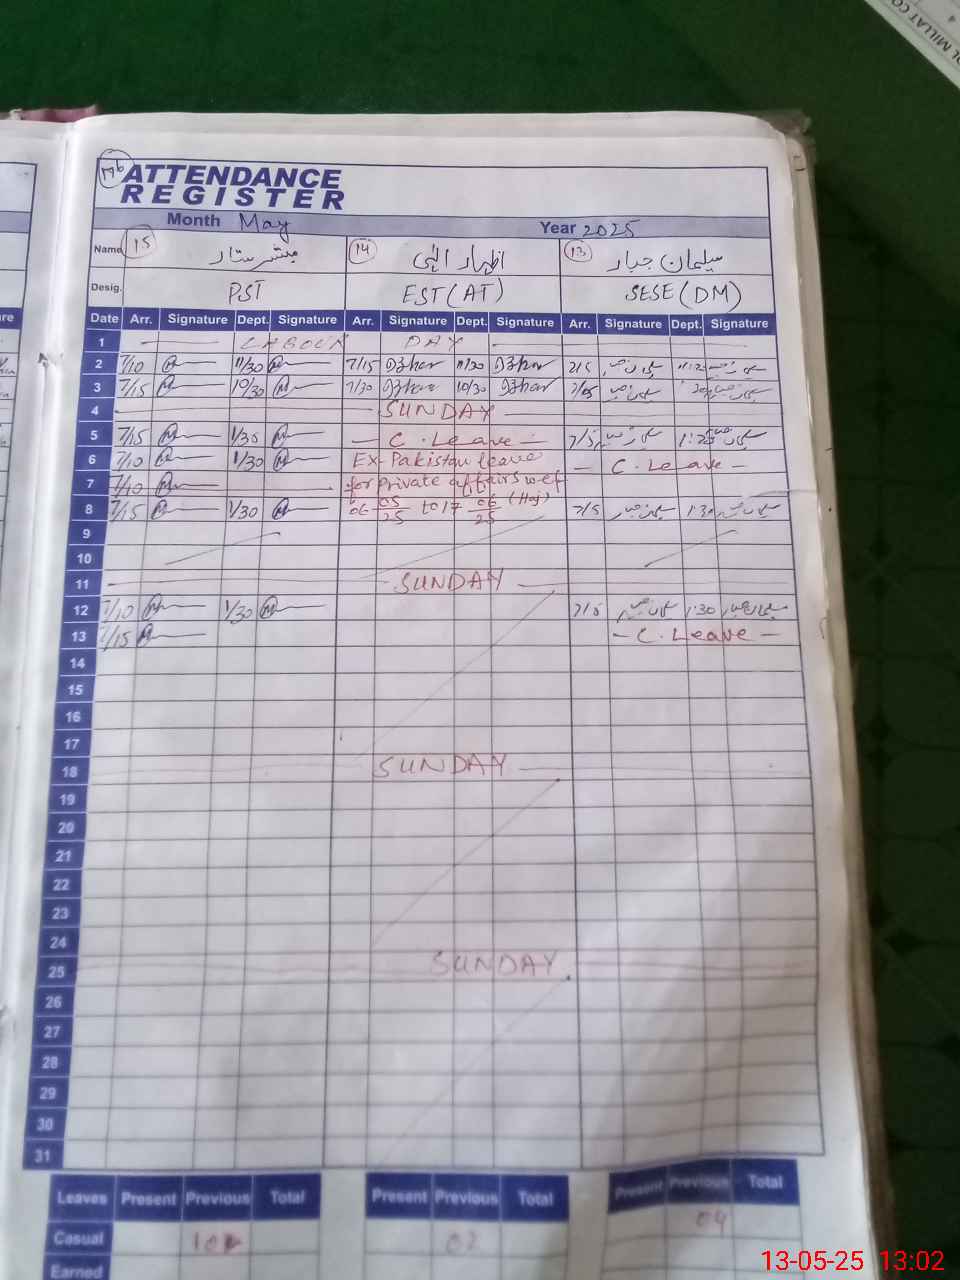 OL MILLAT CO
ATTENDANCE
REGISTER
Month May Year 2025
Name 15 مبشر ستار 14 اظہار الہی 13 سلیمان جبار
Desig. PST EST (AT) SESE (DM)
Date Arr. Signature Dept. Signature Arr. Signature Dept. Signature Arr. Signature Dept. Signature
1 LABOUR DAY
2 7/10 11/30 7/15 Izhar 11/30 Izhar 7/5
3 7/15 10/30 7/30 Izhar 10/30 Izhar 7/05
4 SUNDAY
5 7/15 1/30 C. Leave 7/5 1:25
6 7/10 1/30 Ex-Pakistan leave C. Leave
7 7/10 for private affairs wef
8 7/15 1/30 06-05/25 to 17 06/25 (Haj) 7/5 1:30
9
10
11 SUNDAY
12 7/10 1/30 7/5 1:30
13 7/15 C. Leave
14
15
16
17
18 SUNDAY
19
20
21
22
23
24
25 SUNDAY
26
27
28
29
30
31
Leaves Present Previous Total Present Previous Total Present Previous Total
Casual 02 04
Earned
13-05-25 13:02